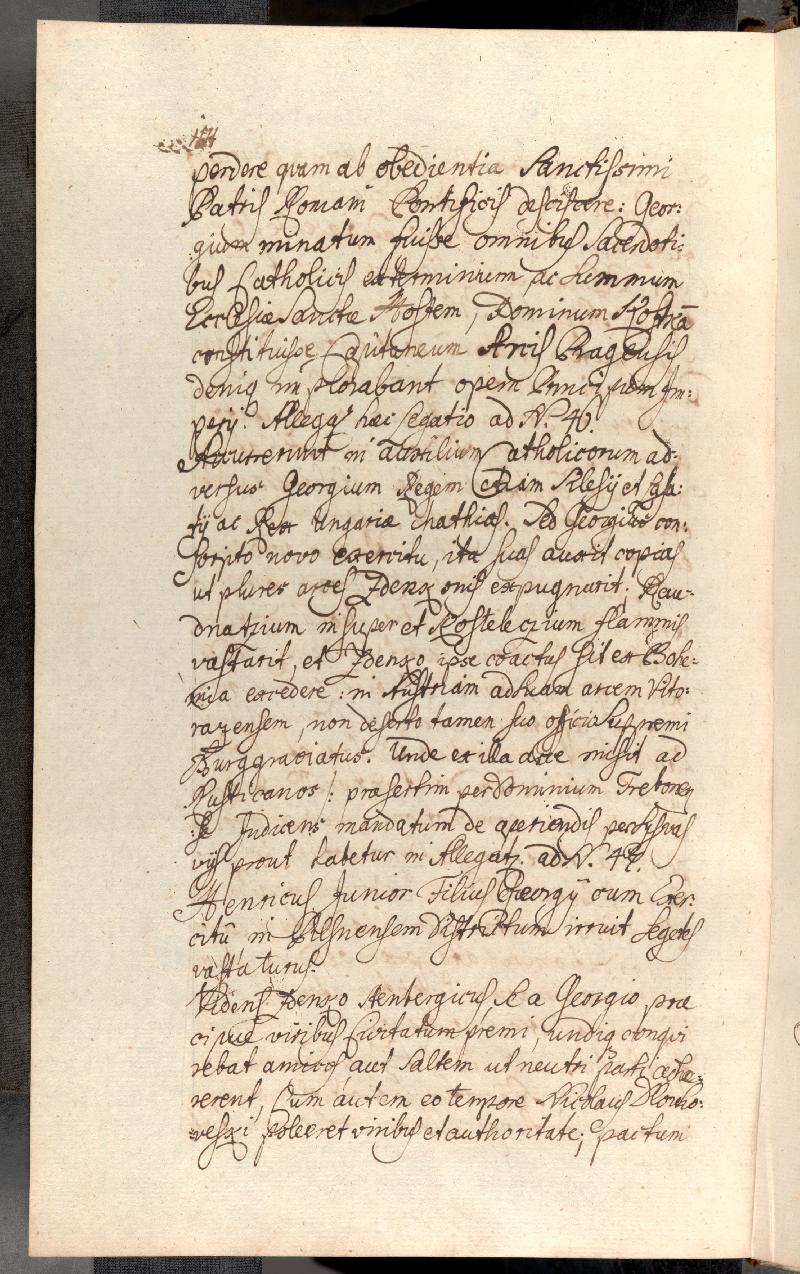 154
perdere quam ab obedientia Sanctissimi
Patris Romani Pontificis desciscere: Geor:
gium minatum fuisse omnibus Sacerdoti:
bus Catholicis exterminium, ac summum
Ecclesiæ Sanctæ Hostem, Dominum
constituisse Capitaneum Arcis Pragensis
deniq implorabant opem Principum Im:
perij. Allegq hæc legatio ad N. 46.
Accurrerunt in auxilium Catholicorum ad:
versus Georgium Regem Etiam Silesij et
ac Rex Ungariæ Mathias. Sed Georgius con:
scripto novo exercitu, ita suas auxit copias
ut plures arces Zdenkonis expugnarit: Rau:
dnatzium insuper et Kostelezium flammis
vastarit, et Zdenko ipse coactus sit ex Bohe:
mia excedere: in Austriam ad suam arcem Vito:
razensem, non deserto tamen suo officio Supremi
Burggraviatus. Unde ex illa arce misit ad
Rusticanos /: præsertim per Dominium Trebonen
:se Judices mandatum de aperiendis per Sylvas
vijs prout habetur in Allegatz. ad N. 47.
Henricus Junior Filius Georgij cum Exer:
citû in Pilsnensem Districtum irruit segetes
vastaturus.
Videns Zdenko Stenbergicus se a Georgio præ
cipue viribus Civitatum premi, undiq conqui
rebat amicos aut saltem ut neutri parti adhæ:
rerent, Cum autem eo tempore Nicolaus
polleret viribus et authoritate; pactum